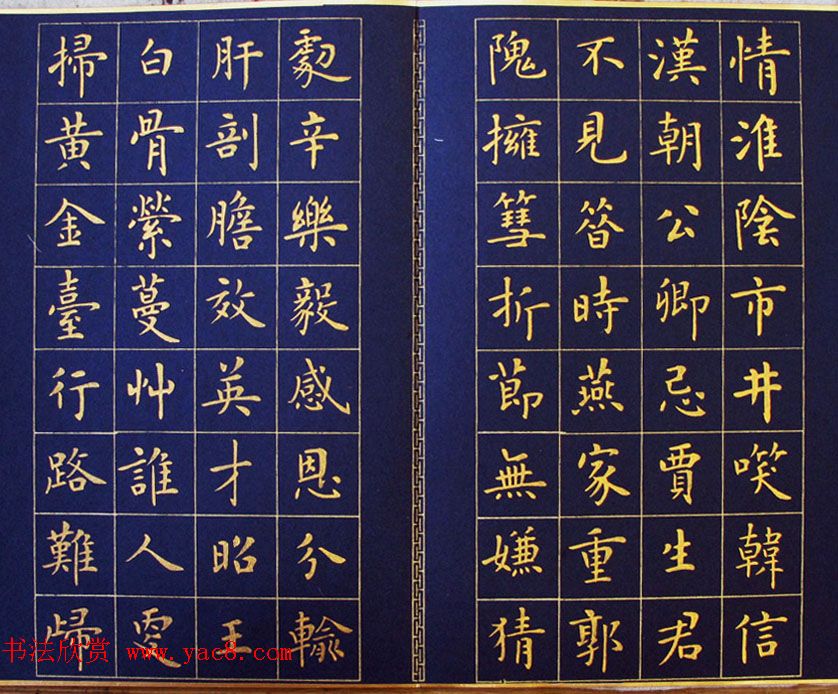 情淮陰市井咲韓信
漢朝公卿忌賈生君
不見昝時燕家重郭
隗擁篲折節無嫌猜
劇辛樂毅感恩分輸
肝剖膽效英才昭王
白骨縈蔓艸誰人更
掃黃金臺行路難歸
书法欣赏 www.yac8.com